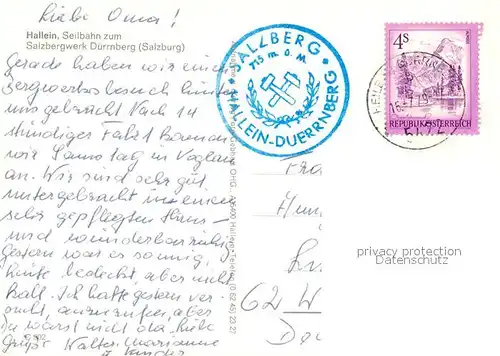 Liebe Oma!
Hallein, Seilbahn zum
Salzbergwerk Dürrnberg (Salzburg)
Gerade haben wir einen
Bergwerksbesuch hinter
uns gebracht. Nach 14
stündiger Fahrt kamen
wir Samstag in Voglau
an. Wir sind sehr gut
untergebracht in einem
sehr gepflegten Haus
und wunderbar ruhig.
Gestern war es sonnig,
heute bedeckt, aber nicht
kalt. Ich hatte gestern ver-
sucht, anzurufen, aber
Du warst nicht da. Liebe
Grüße Walter, Marianne
SALZBERG
715 m. ü. M.
HALLEIN-DUERRNBERG
4s
REPUBLIK ÖSTERREICH
OHG., A-5400 Hallein, Telefon (0 62 45) 23 27
62 W
privacy protection
Datenschutz